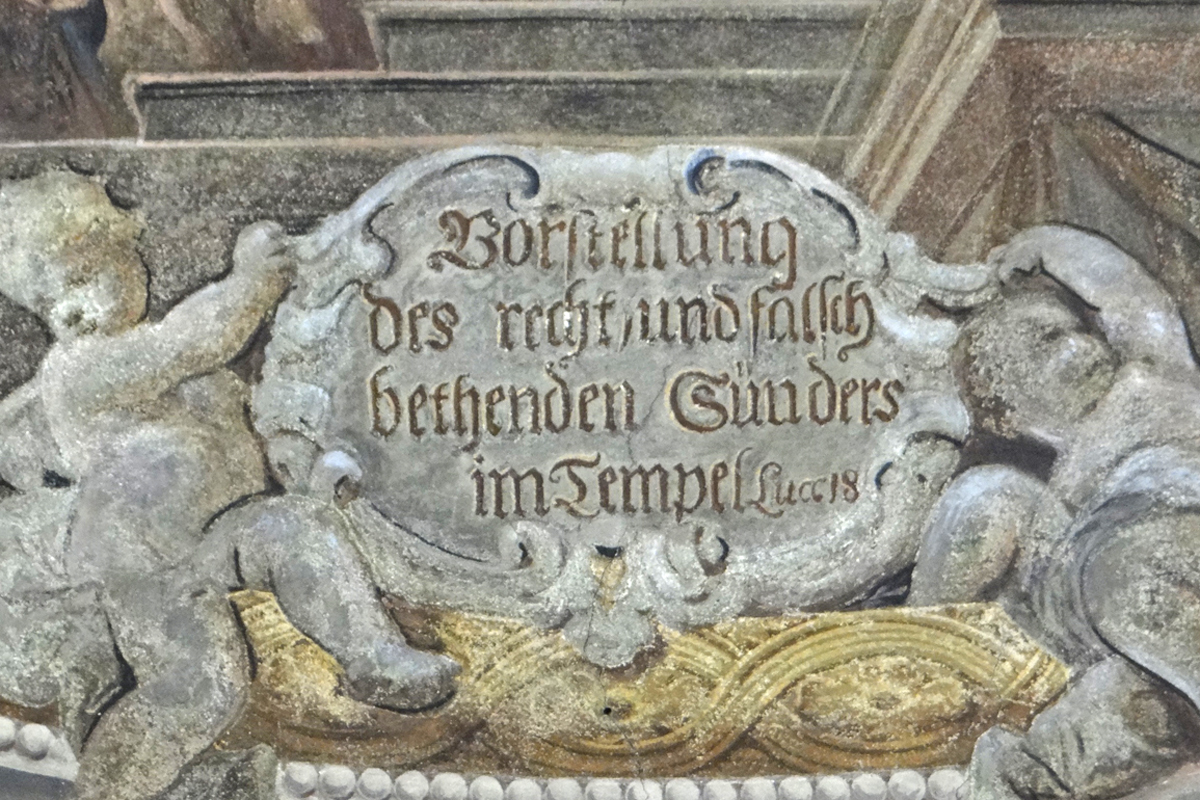 Vorstellung
des recht, und falsch
bethenden Sünders
im Tempel Luc: 18